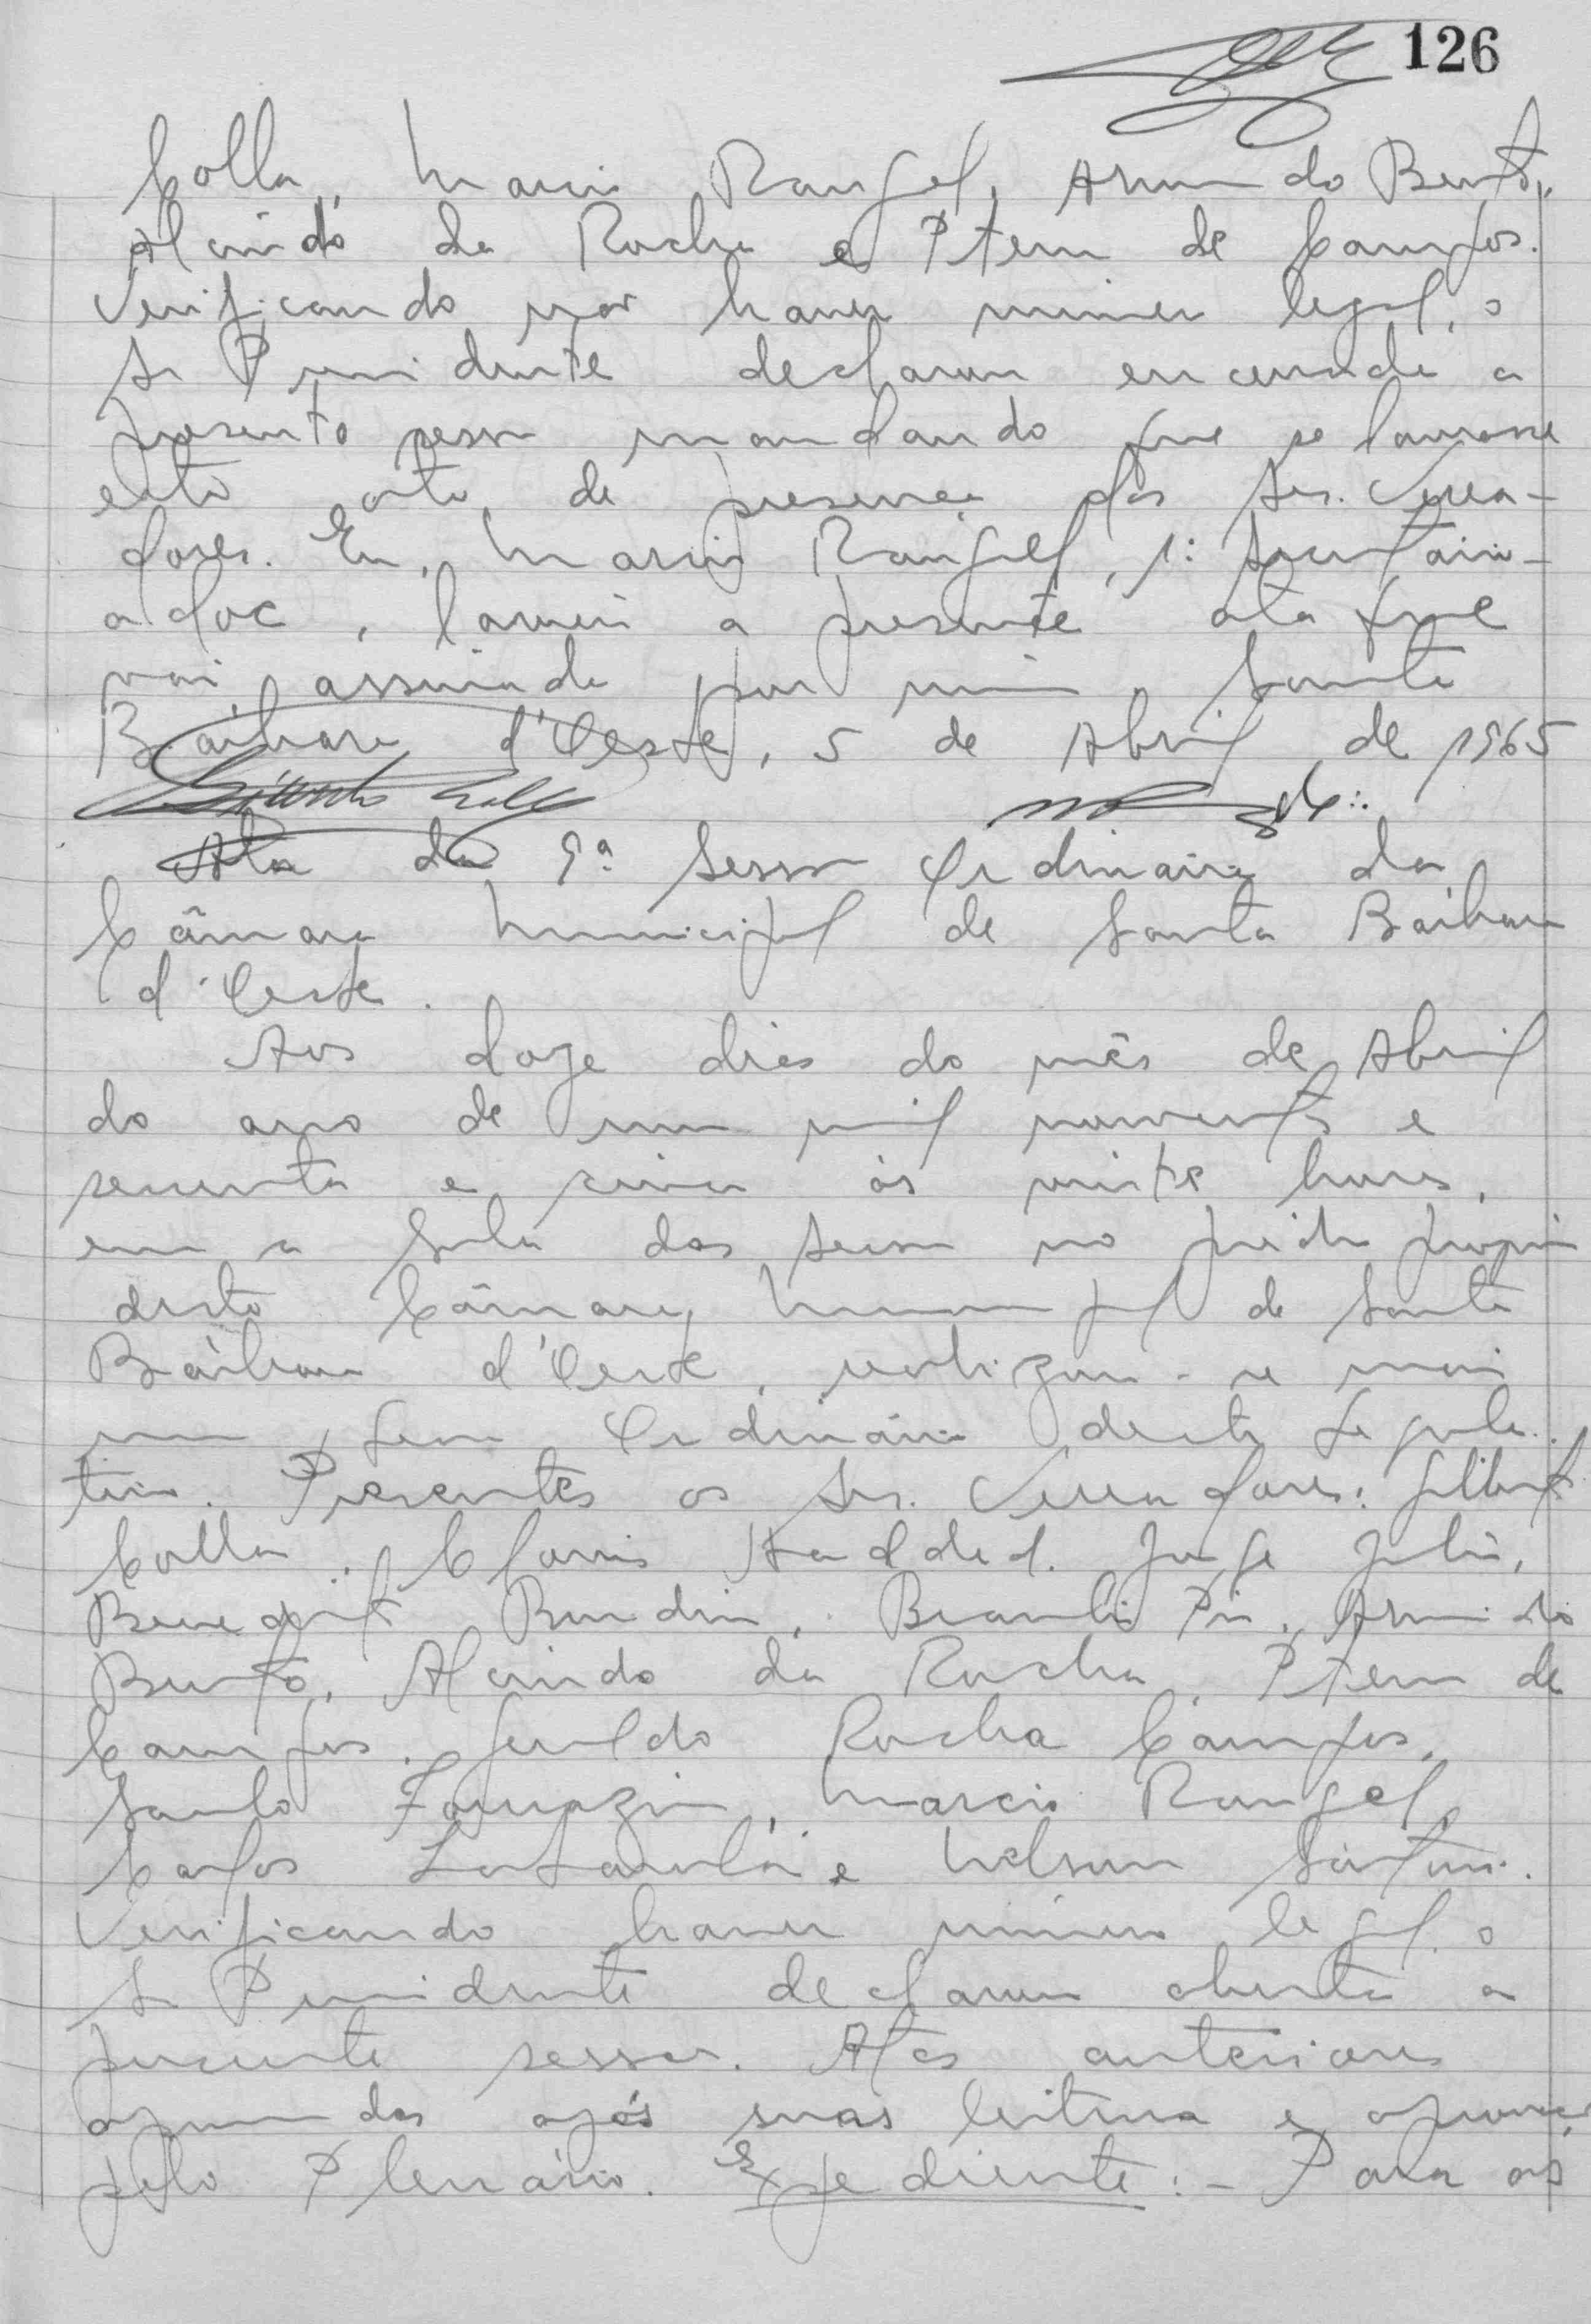 126
Colla, Marcio Rangel, Armindo Bento,
Alcindo da Rocha e Ptem de Campos.
Verificando não haver número legal, o
Sr Presidente declarou encerrada a
presente sessão mandando que se lavrasse
esta ata de presença dos Srs. Verea-
dores. Eu, Marcio Rangel, 1º Secretário-
adoc, lavrei a presente ata que
vai assinada por mim. Santa
Bárbara d'Oeste, 5 de Abril de 1965
Ata da 9ª Sessão Ordinária da
Câmara Municipal de Santa Bárbara
d'Oeste.
Aos doze dias do mês de Abril
do ano de um mil novecentos e
sessenta e cinco às vinte horas,
em a Sala das Sessões no prédio próprio
desta Câmara Municipal de Santa
Bárbara d'Oeste, realizou-se mais
uma Sessão Ordinária deste Legisla-
tivo. Presentes os Srs. Vereadores: Gilberto
Colla, Clovis Haddad, Jorge Julio,
Benedito Rondin, Braulio Pio, Armindo
Bento, Alcindo da Rocha, Ptem de
Campos, Geraldo Rocha Campos,
Santo Fornazin, Marcio Rangel,
Carlos e Nelson
Verificando haver número legal, o
Sr Presidente declarou aberta a
presente sessão. Atas anteriores
aprovadas após suas leitura e aprovação
pelo Plenário. Expediente:- Para os